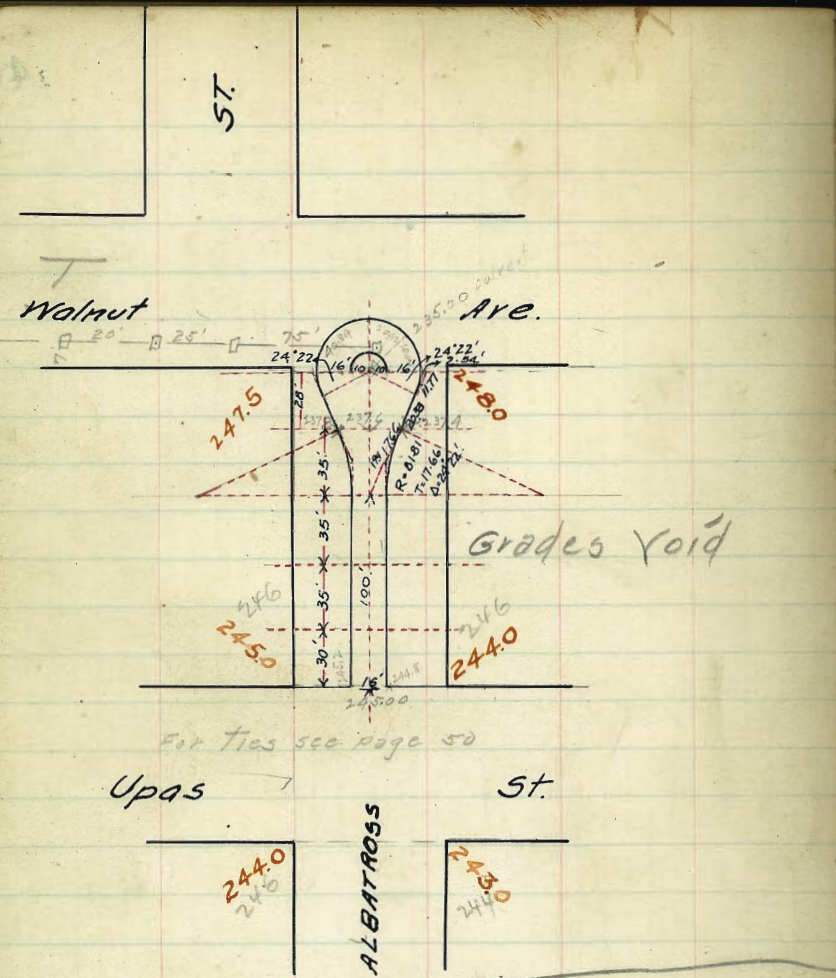 ST.
Walnut Ave.
235.00 culvert
20' 25' 75'
24°22' 16' 10 10 16' 24°22'
2.54'
247.5 248.0
28'
237.6 237.4
11.77
20.38
17.66
R=81.81
T=17.66
D=24°22'
35'
35'
35'
30'
100'
Grades Void
246 246
245.0 244.0
245.2 244.8
16'
245.00
For Ties see page 50
Upas St.
ALBATROSS
244.0 243.0
246 244